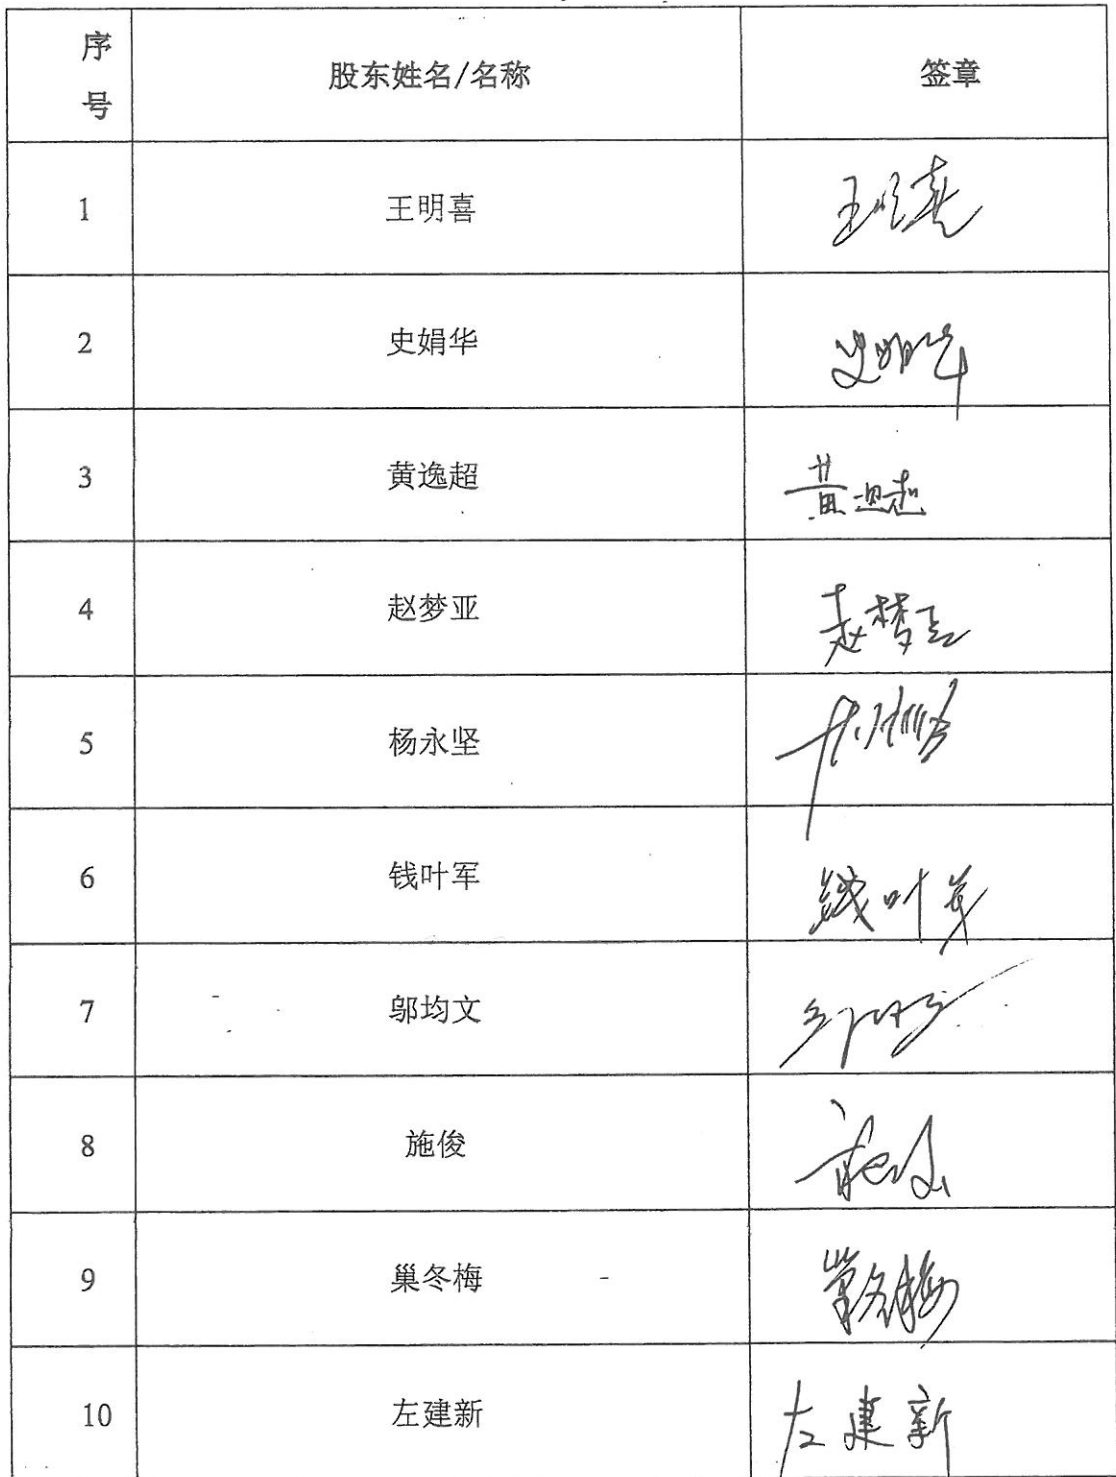 序号 股东姓名/名称 签章
1 王明喜 王明喜
2 史娟华 史娟华
3 黄逸超 黄逸超
4 赵梦亚 赵梦亚
5 杨永坚
6 钱叶军 钱叶军
7 邬均文
8 施俊 施俊
9 巢冬梅 巢冬梅
10 左建新 左建新